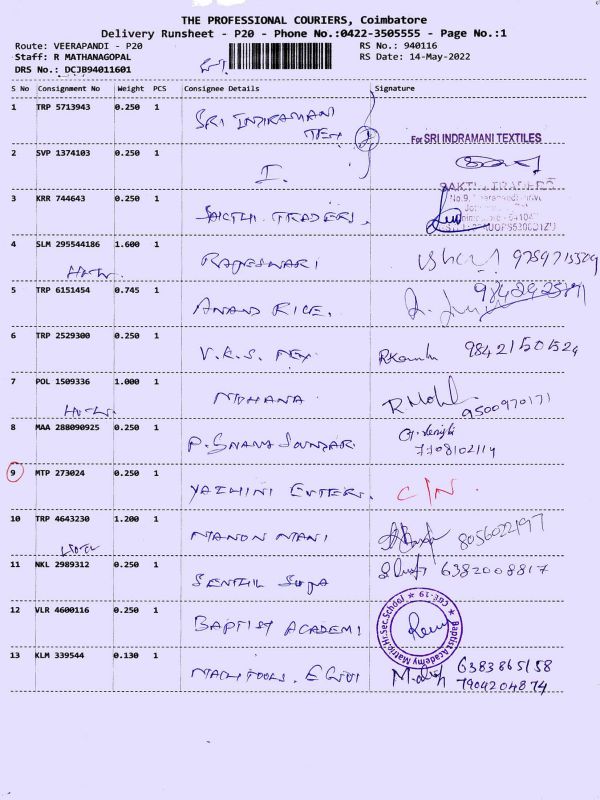 THE PROFESSIONAL COURIERS, Coimbatore
Delivery Runsheet - P20 - Phone No.:0422-3505555 - Page No.:1
Route: VEERAPANDI - P20
RS No.: 940116
Staff: R MATHANAGOPAL
RS Date: 14-May-2022
DRS No.: DCJB94011601
S No Consignment No Weight PCS Consignee Details Signature
1 TRP 5713943 0.250 1 SRI INDIRAMANI TEX
For SRI INDRAMANI TEXTILES
2 SVP 1374103 0.250 1 I.
3 KRR 744643 0.250 1 SAKTHI TRADERS.
SAKTHI TRADERS
4 SLM 295544186 1.600 1 RAJESWARI
5 TRP 6151454 0.745 1 ANAND RICE.
6 TRP 2529300 0.250 1 V.K.S. NEX 98421501524
7 POL 1509336 1.000 1 MOHANA R Mohal 9500970171
8 MAA 288090925 0.250 1 P. GNANA SOUNDARI 7708102114
9 MTP 273024 0.250 1 YAZHINI ENTERS. C/N.
10 TRP 4643230 1.200 1 MANON MANI 8056022197
11 NKL 2989312 0.250 1 SENTHIL 6382008817
12 VLR 4600116 0.250 1 BAPTIST ACADEMI
Baptist Academy Matric.Hr.Sec.School ★ CBE-19 ★
13 KLM 339544 0.130 1 MACH TOOLS. 6383865158
7904204874